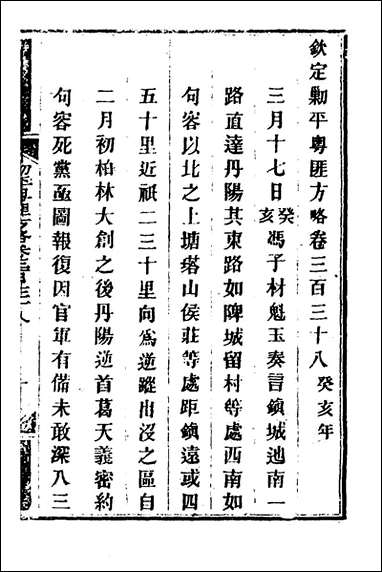 欽定勦平粵匪方略卷三百三十八癸亥年
三月十七日癸亥馮子材魁玉奏言鎮城迤南一
路直達丹陽其東路如陴城留村等處西南如
句容以北之上塘塔山侯莊等處距鎮遠或四
五十里近祇二三十里向為逆蹤出沒之區自
二月初柏林大創之後丹陽逆首葛天義密約
句容死黨亟圖報復因官軍有備未敢深入三